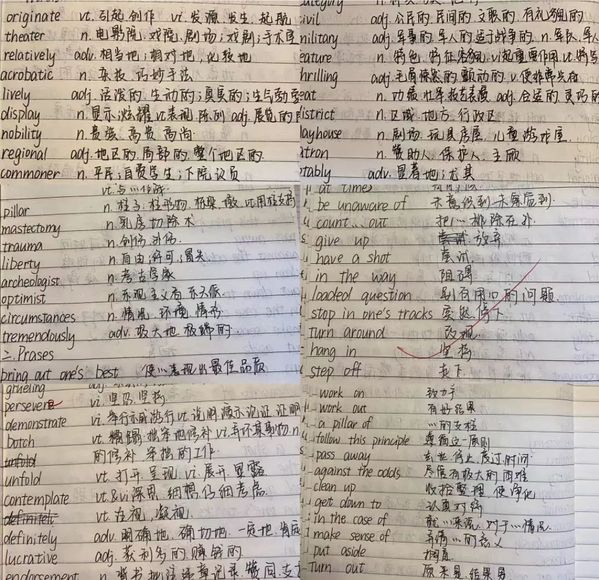 originate vt. 引起 创作 vi. 发源 发生 起航
theater n. 电影院 戏院 剧场；戏剧；手术室
relatively adv. 相当地；相对地 比较地
acrobatic n. 杂技 巧妙手法
lively adj. 活泼的 生动的；真实的；生气勃勃
display n. 显示 炫耀 vt. 表现 陈列 adj. 展览的
nobility n. 贵族 高贵 高尚
regional adj. 地区的 局部的 整个地区的
commoner n. 平民；自费学生；下院议员
civil adj. 公民的 民间的 文职的 有礼貌的
military adj. 军事的 军人的 n. 军队 军人
eature n. 特色 特征
hrilling adj. 毛骨悚然的 颤动的 v.使
eat
district n. 区域 地方 行政区
layhouse n. 剧场 玩具房屋 儿童游戏屋
atron n. 赞助人 保护人 主顾
tably adv. 显著地；尤其
pillar n. 柱子 柱形物
mastectomy n. 乳房切除术
trauma n. 创伤 外伤
liberty n. 自由；许可；冒失
archeologist n. 考古学家
optimist n. 乐观主义者 乐天派
circumstances n. 情况 环境 情形
tremendously adv. 极大地 极端的
二. Prases
bring out one's best 使…表现出最佳品质
at times
be unaware of 未意识到 未察觉到
count...out 把…排除在外
give up 放弃
have a shot 尝试
in the way 阻碍
loaded question 别有用心的问题
stop in one's tracks 突然停下
turn around 改观
hang in 坚持
step off 走下
grueling
persevere vi. 坚忍 坚持
demonstrate vi. 举行示威游行 vt. 说明 演示 论证 证明
botch vt.
的修补 笨拙的工作
unfold
unfold vt. 打开 呈现 vi. 展开 显露
contemplate vt.&vi 深思 细想 仔细考虑
definitely vt. 注视 凝视
definitely adv. 明确地 确切地 一定地
lucrative adj. 获利多的 赚钱的
endorsement n. 背书
work on 致力于
work out 有好结果
a pillar of …的支柱
follow this principle 遵循这一原则
pass away 去世 停止 度过时间
against the odds 尽管有极大的困难
clean up 收拾整理 使净化
get down to 认真对待
in the case of 就…来说 对于…情况
make sense of 弄清…的意义
put aside
turn out 原来是 结果是